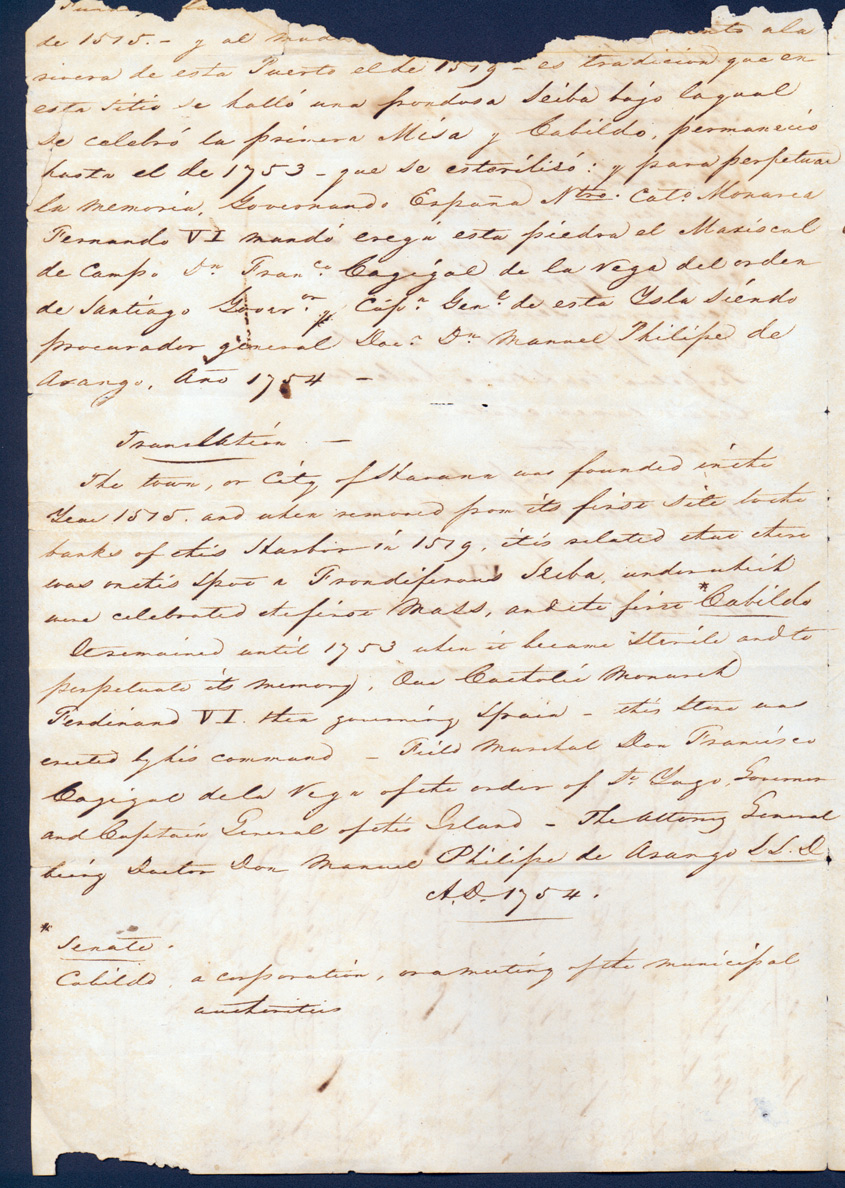 de 1515. - y al muda
ento a la
rivera de esta Puerto el de 1519 - es tradicion que en
esta sitio se halló una frondosa Seiba bajo la qual
se celebró la primera Misa y Cabildo, permaneció
hasta el de 1753 - que se esterilisó: y para perpetuar
la memoria, Governando España Ntro. Cato. Monarca
Fernando VI mandó eregir esta piedra el Mariscal
de Campo Dn. Franco. Cagigal de la Vega del orden
de Santiago Goveror. y Capn. Genl. de esta Ysla Siendo
procurador general Docr. Dn. Manuel Philipe de
Arango, Año 1754 -
Translation -
The town, or City of Havana was founded in the
Year 1515. and when removed from its first site to the
banks of this Harbor in 1519, it is related that there
was on this spot a Frondiferous Seiba, under which
were celebrated the first Mass, and the first *Cabildo
It remained until 1753 when it became sterile and to
perpetuate its memory, Our Catholic Monarch
Ferdinand VI. then governing Spain - this Stone was
erected by his command - Field Marshal Don Francisco
Cagigal de la Vega of the order of St. Yago, Governor
and Captain General of this Island - The Attorney General
being Doctor Don Manuel Philipe de Arango L.L.D
A.D. 1754.
* Senate.
Cabildo, a corporation, or a meeting of the municipal
authorities